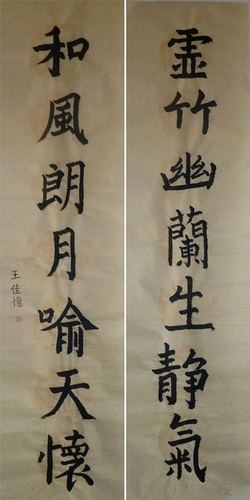 虛竹幽蘭生静氣
和風朗月喻天懷
王佳憶